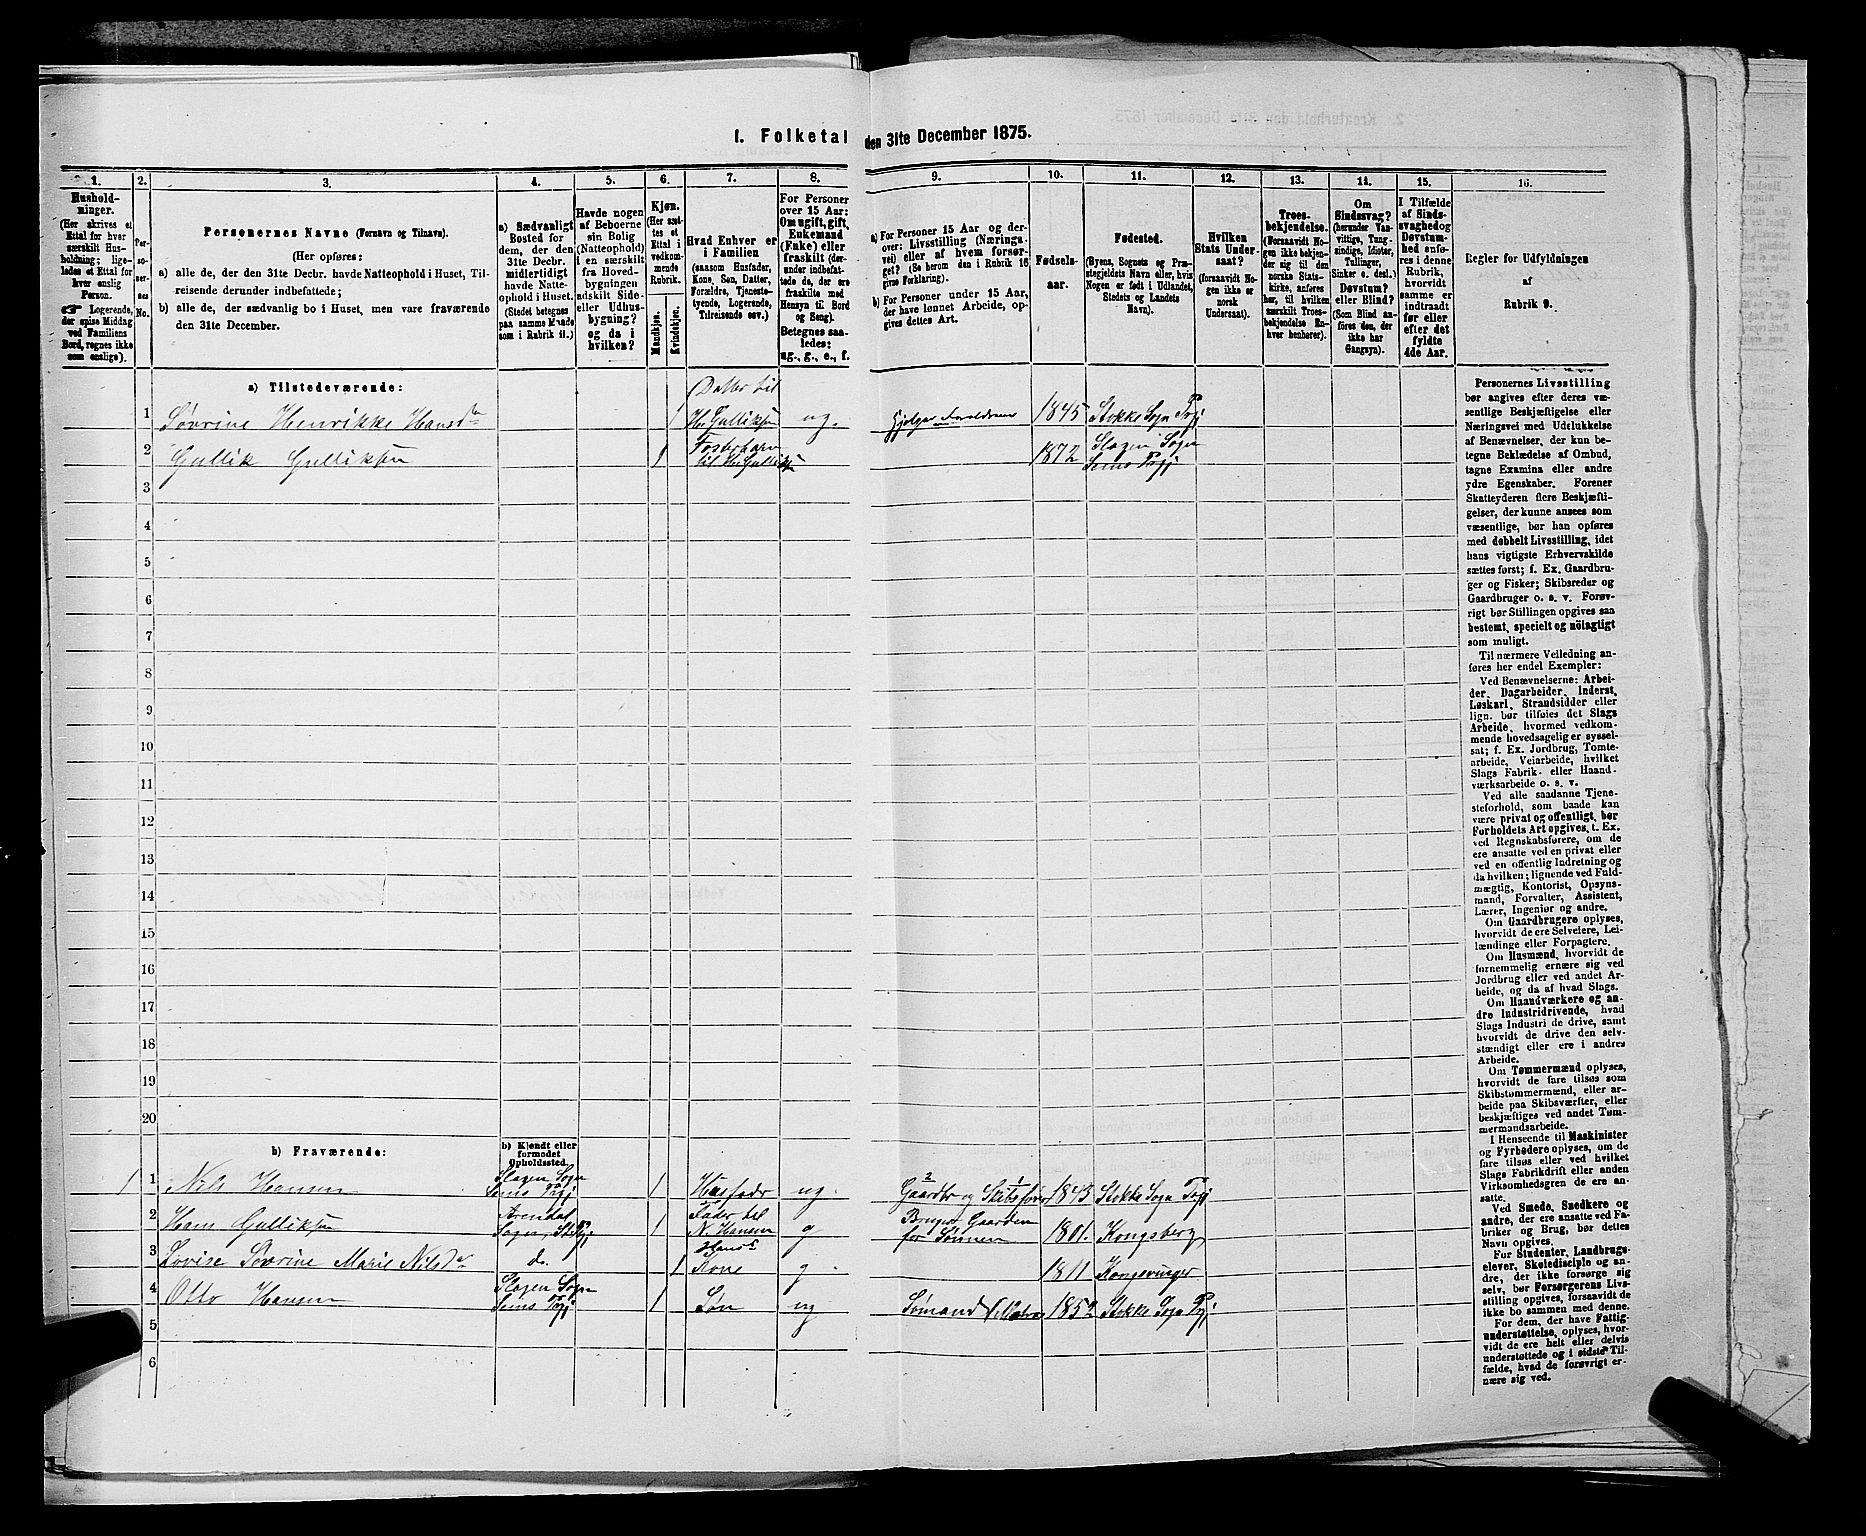 1. Folketal den 31te December 1875.
1. 2. 3. 4. 5. 6. 7. 8. 9. 10. 11. 12. 13. 14. 15. 16.
Hushold-
ninger.
(Her skrives et
Ettal for hver
særskilt Hus-
holdning; lige-
ledes et Ettal for
hver enslig
Person.
☛ Logerende,
der spise Middag
ved Familiens
Bord, regnes ikke
som enslige).
Per-
so-
ner-
nes
No.
Personernes Navne (Fornavn og Tilnavn).
(Her opføres:
a) alle de, der den 31te Decbr. havde Natteophold i Huset, Til-
reisende derunder indbefattede;
b) alle de, der sædvanlig bo i Huset, men vare fraværende
den 31te December.
a) Sædvanligt
Bosted for
dem, der den
31te Decbr.
midlertidigt
havde Natte-
ophold i Huset.
(Stedet betegnes
paa samme Maade
som i Rubrik 11.)
Havde nogen
af Beboerne
sin Bolig
(Natteophold)
i en særskilt
fra Hoved-
bygningen
adskilt Side-
eller Udhus-
bygning?
og da i
hvilken?
Kjøn.
(Her sæt-
tes et
Ettal i
vedkom-
mende
Rubrik.
Mandkjøn.
Kvindekjøn.
Hvad Enhver er
i Familien
(saasom Husfader,
Kone, Søn, Datter,
Forældre, Tjeneste-
tyende, Logerende,
Tilreisende osv.)
For Personer
over 15 Aar:
Om ugift, gift,
Enkemand
(Enke) eller
fraskilt (der-
under indbefat-
tede de, der ere
fraskilte med
Hensyn til Bord
og Seng).
Betegnes saa-
ledes:
ug., g., e., f.
a) For Personer 15 Aar og der-
over: Livsstilling (Nærings-
vei) eller af hvem forsør-
get? (Se herom den i Rubrik 16
givne Forklaring).
b) For Personer under 15 Aar,
der have lønnet Arbeide, op-
gives dettes Art.
Fødsels-
aar.
Fødested.
(Byens, Sognets og Præ-
stegjeldets Navn eller, hvis
Nogen er født i Udlandet,
Stedets og Landets
Navn).
Hvilken
Stats Under-
saat?
(forsaavidt No-
gen ikke er
norsk
Undersaat).
Troes-
bekjendelse.
(Forsaavidt No-
gen ikke bekjen-
der sig til den
norske Stats-
kirke, anføres
her, til hvilken
særskilt Troes-
bekjendelse En-
hver henhører).
Om
Sindssvag?
(herunder Van-
vittige, Tung-
sindige, Idioter,
Tullinger,
Sinker o. desl.)
Døvstum?
eller Blind?
(Som Blind an-
føres den, der
ikke har
Gangsyn).
I Tilfælde
af Sinds-
svaghed og
Døvstum-
hed anfø-
res i denne
Rubrik,
hvorvidt
samme er
indtraadt
før eller
efter det
fyldte
4de Aar.
Regler for Udfyldningen
af
Rubrik 9.
a) Tilstedeværende:
1 Søvrine Henrikke Hansd. 1 Datter til Hs Gulliksen ug. Hjelper Forældrene 1845 Stokke Sogn Prgj
2 Gullik Gulliksen 1 Fosterbarn til Hs Gulliksen 1872 Slagen Sogn Sems Prgj
3
4
5
6
7
8
9
10
11
12
13
14
15
16
17
18
19
20
b) Fraværende:
b) Kjendt eller
formodet
Opholdssted.
1 1 Nils Hansen Slagen Sogn Sems Prgj 1 Husfader ug. 2 Gaardbr og 1 Skibsfører 1843 Stokke Sogn Prgj
2 Hans Gulliksen Arendal Sogn 1 Fader til N. Hansen g Bruger Gaarden for Sønnen 1801. Kongsberg
3 Lovise Sovrine Marie Nilsdr do. 1 Hans Kone g. 1811 Kongsvinger
4 Otto Hansen Slagen Sogn Sems Prgj 1 Søn ug Sømand 1852 Stokke Sogn Prgj
5
6
Personernes Livsstilling
bør angives efter deres væ-
sentlige Beskjæftigelse eller
Næringsvei med Udelukkelse
af Benævnelser, der kun be-
tegne Beklædelse af Ombud,
tagne Examina eller andre
ydre Egenskaber. Forener
Skatteyderen flere Beskjæfti-
gelser, der kunne ansees som
væsentlige, bør han opføres
med dobbelt Livsstilling, idet
hans vigtigste Erhvervskilde
sættes først; f. Ex. Gaardbru-
ger og Fisker; Skibsreder og
Gaardbruger o. s. v. Forøv-
rigt bør Stillingen opgives saa
bestemt, specielt og nöiagtigt
som muligt.
Til nærmere Veiledning an-
føres her endel Exempler:
Ved Benævnelserne: Arbei-
der, Dagarbeider, Inderst,
Løskarl, Strandsidder eller
lign. bør tilføies det Slags
Arbeide, hvormed vedkom-
mende hovedsagelig er syssel-
sat; f. Ex. Jordbrug, Tomte-
arbeide, Veiarbeide, hvilket
Slags Fabrik- eller Haand-
værksarbeide o. s. v.
Ved alle saadanne Tjene-
steforhold, som baade kan
være privat og offentligt, bør
Forholdets Art opgives, t. Ex.
ved Regnskabsførere, om de
ere ansatte ved en privat eller
ved en offentlig Indretning og
da hvilken; lignende ved Fuld-
mægtig, Kontorist, Opsyns-
mand, Forvalter, Assistent,
Lærer, Ingeniør og andre.
Om Gaardbrugere oplyses,
hvorvidt de ere Selveiere, Lei-
lændinge eller Forpagtere.
Om Husmænd, hvorvidt de
fornemmelig ernære sig ved
Jordbrug eller ved andet Ar-
beide, og da af hvad Slags.
Om Haandværkere og an-
dre Industridrivende, hvad
Slags Industri de drive, samt
hvorvidt de drive den selv-
stændigt eller ere i andres
Arbeide.
Om Tømmermænd oplyses,
hvorvidt de fare tilsøs som
Skibstømmermænd, eller ar-
beide paa Skibsværfter, eller
beskjæftiges ved andet Tøm-
mermandsarbeide.
I Henseende til Maskinister
og Fyrbødere oplyses, om de
fare tilsøs eller ved hvilket
Slags Fabrikdrift eller anden
Virksomhedsgren de ere an-
satte.
Ved Smede, Snedkere og
andre, der ere ansatte ved Fa-
briker og Brug, bør dettes
Navn opgives.
For Studenter, Landbrugs-
elever, Skoledisciple og an-
dre, der ikke forsørge sig
selv, bør Forsørgerens Livs-
stilling opgives, forsaavidt de
ikke bo sammen med denne.
For dem, der have Fattig-
understøttelse, oplyses, hvor-
vidt de ere helt eller delvis
understøttede og i sidste Til-
fælde, hvad de forøvrigt er-
nære sig ved.